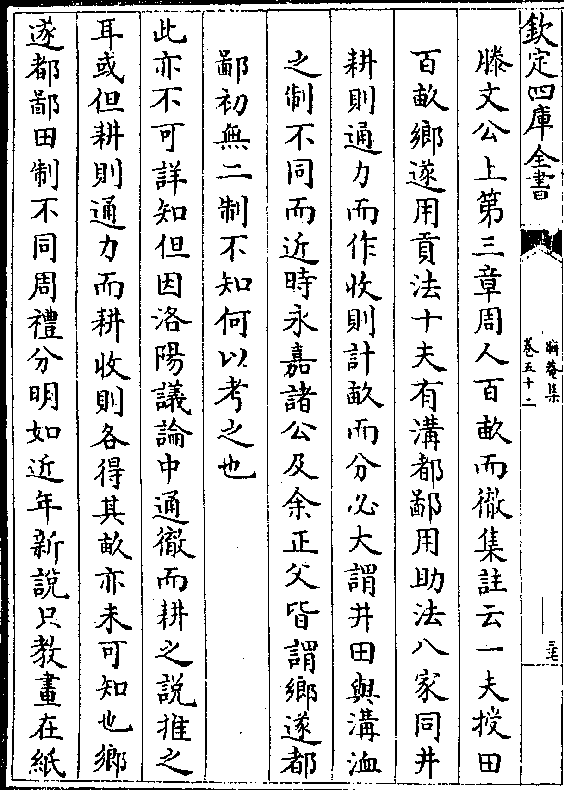 欽定四庫全書
晦菴集
卷五十二
滕文公上第三章周人百畝而徹集註云一夫授田
百畝鄉遂用貢法十夫有溝都鄙用助法八家同井
耕則通力而作收則計畝而分必大謂井田與溝洫
之制不同而近時永嘉諸公及余正父皆謂鄉遂都
鄙初無二制不知何以考之也
此亦不可詳知但因洛陽議論中通徹而耕之說推之
耳或但耕則通力而耕收則各得其畝亦未可知也鄉
遂都鄙田制不同周禮分明如近年新說只教畫在紙